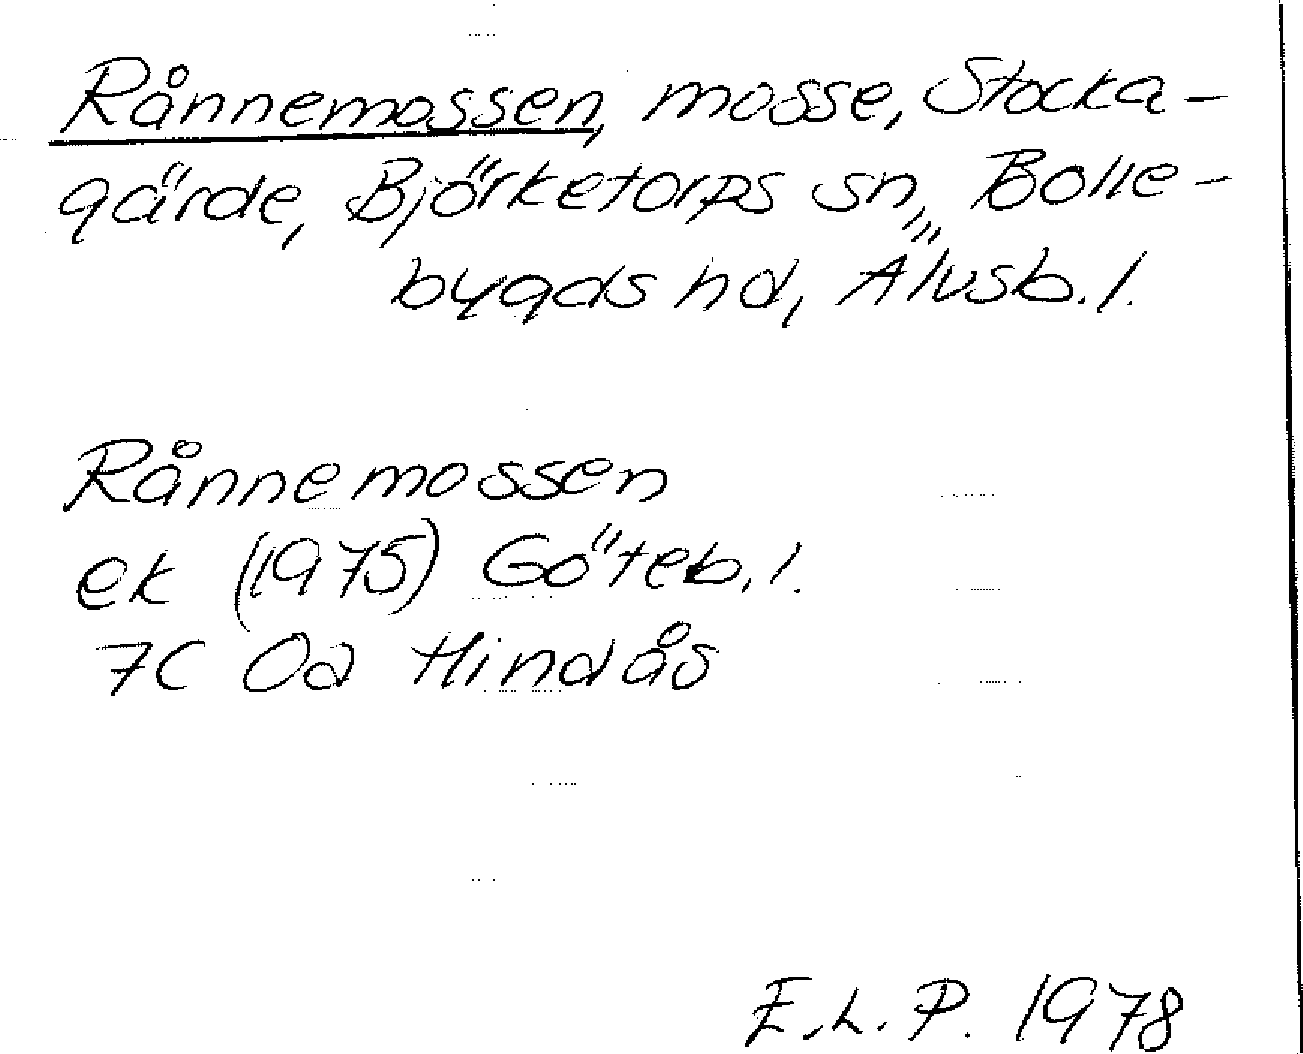 Rånnemossen, mosse, Stocka-
gärde, Björketorps sn, Bolle-
bygds hd, Älvsb. l.
Rånnemossen
ek (1975) Göteb. l.
7C 0a Hindås
E.L.P. 1978